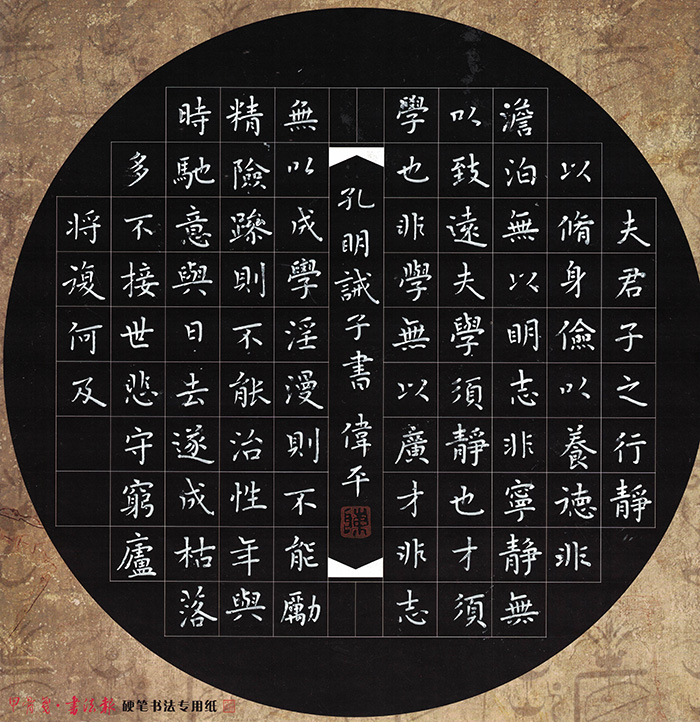 夫君子之行靜
以脩身儉以養德非
澹泊無以明志非寧靜無
以致遠夫學須靜也才須
學也非學無以廣才非志
孔明誡子書 偉平
無以成學淫漫則不能勵
精險躁則不能治性年與
時馳意與日去遂成枯落
多不接世悲守窮廬
将復何及
書法報 硬笔书法专用纸